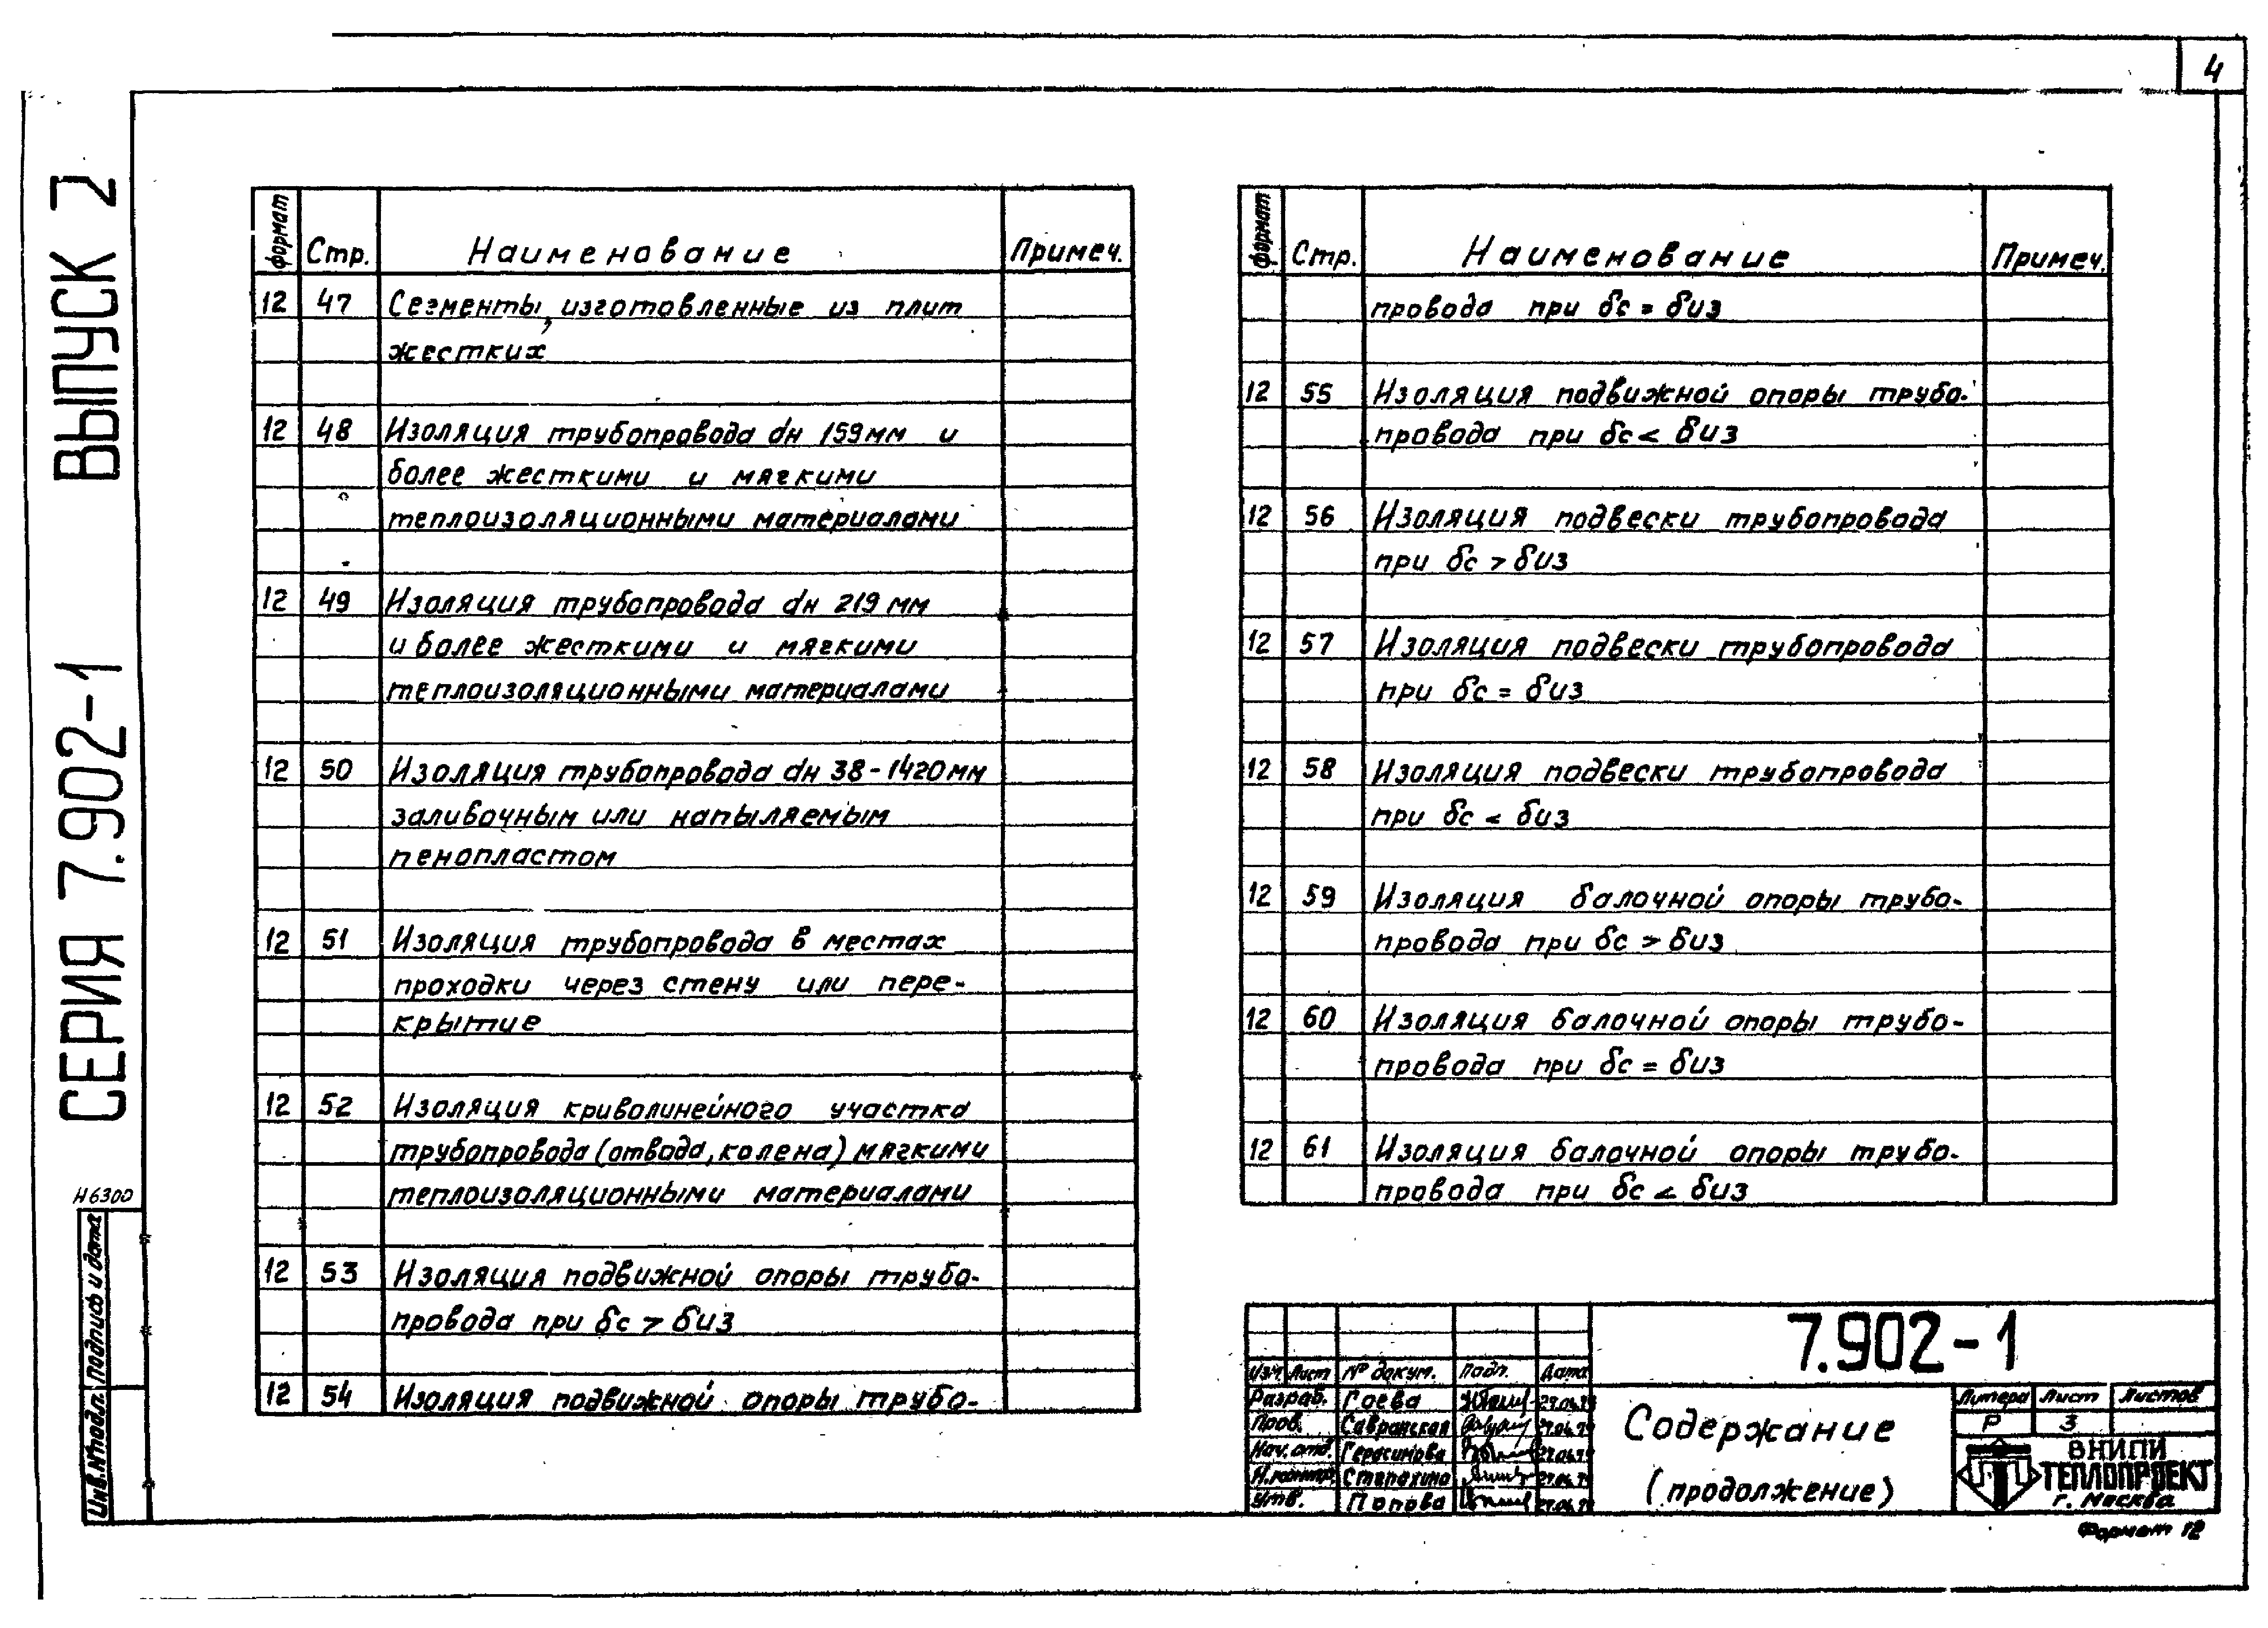 4
СЕРИЯ 7.902-1 ВЫПУСК 2
формат Стр. Наименование Примеч.
12 47 Сегменты, изготовленные из плит
жестких
12 48 Изоляция трубопровода dн 159мм и
более жесткими и мягкими
теплоизоляционными материалами
12 49 Изоляция трубопровода dн 219 мм
и более жесткими и мягкими
теплоизоляционными материалами
12 50 Изоляция трубопровода dн 38-1420мм
заливочным или напыляемым
пенопластом
12 51 Изоляция трубопровода в местах
проходки через стену или пере-
крытие
12 52 Изоляция криволинейного участка
трубопровода (отвода, колена) мягкими
теплоизоляционными материалами
12 53 Изоляция подвижной опоры трубо-
провода при δс > δиз
12 54 Изоляция подвижной опоры трубо-
формат Стр. Наименование Примеч.
провода при δс = δиз
12 55 Изоляция подвижной опоры трубо-
провода при δс < δиз
12 56 Изоляция подвески трубопровода
при δс > δиз
12 57 Изоляция подвески трубопровода
при δс = δиз
12 58 Изоляция подвески трубопровода
при δс < δиз
12 59 Изоляция балочной опоры трубо-
провода при δс > δиз
12 60 Изоляция балочной опоры трубо-
провода при δс = δиз
12 61 Изоляция балочной опоры трубо-
провода при δс < δиз
Н6300
Инв.№подл. Подпись и дата
Изм. Лист № докум. Подп. Дата
Разраб. Гаева
Пров. Савранская
Нач. отд. Герасимова
Н.контр. Степахина
Утв. Попова
7.902-1
Содержание
(продолжение)
Литера Лист Листов
Р 3
ВНИПИ
ТЕПЛОПРОЕКТ
г. Москва
Формат 12